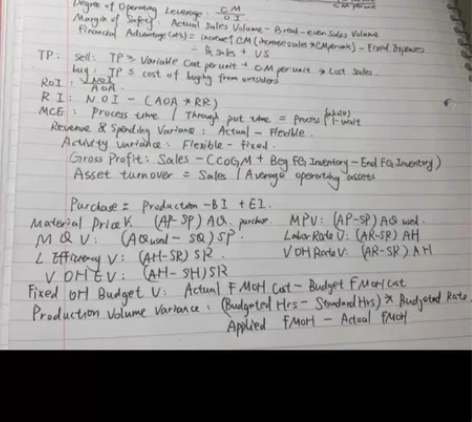 CM per unit
Degree of Operating Leverage: CM / OI
Margin of Safety: Actual Sales Volume - Break-even Sales Volume
Financial Advantage (dis) = increase↑ CM (increase sales * CM per unit) - Fixed Expenses
Sales + VS
TP: sell: TP ≥ Variable Cost per unit + CM per unit * Lost sales.
buy: TP ≤ cost of buying from outsiders
ROI: NOI / AOA
RI: NOI - (AOA * RR)
MCE: Process time / Through put time = process + wait
Revenue & Spending Variance: Actual - Flexible.
Activity variance: Flexible - Fixed.
Gross Profit: Sales - (COGM + Beg FG, Inventory - End FG, Inventory)
Asset turnover = Sales / Average operating assets
Purchase = Production - BI + EI.
Material Price V: (AP-SP) AQ. purchase. MPV: (AP-SP) AQ used.
M Q V: (AQ used - SQ) SP. Labor Rate V: (AR-SR) AH
L Efficiency V: (AH-SR) SR VOH Rate V: (AR-SR) AH
V OH E V: (AH- SH) SR
Fixed OH Budget V: Actual FMOH Cost - Budget FMOH Cost
Production Volume Variance: (Budgeted Hrs - Standard Hrs) * Budgeted Rate
Applied FMOH - Actual FMOH